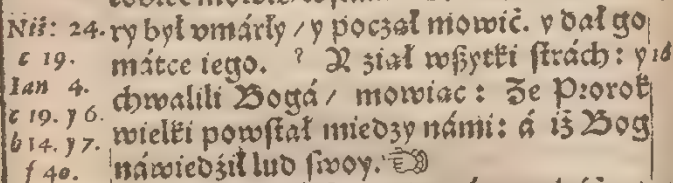 Niż: 24. ry był vmárły / y począł mowić. y dał go
c 19. mátce iego. ² A ziął wßytki ſtrách: y
Ian 4. chwalili Bogá / mowiąc: Że Prorok
c 19. y 6. wielki powſtał miedzy námi: á iż Bog
b 14. y 7. náwiedźił lud ſwoy. ☜
f 40.